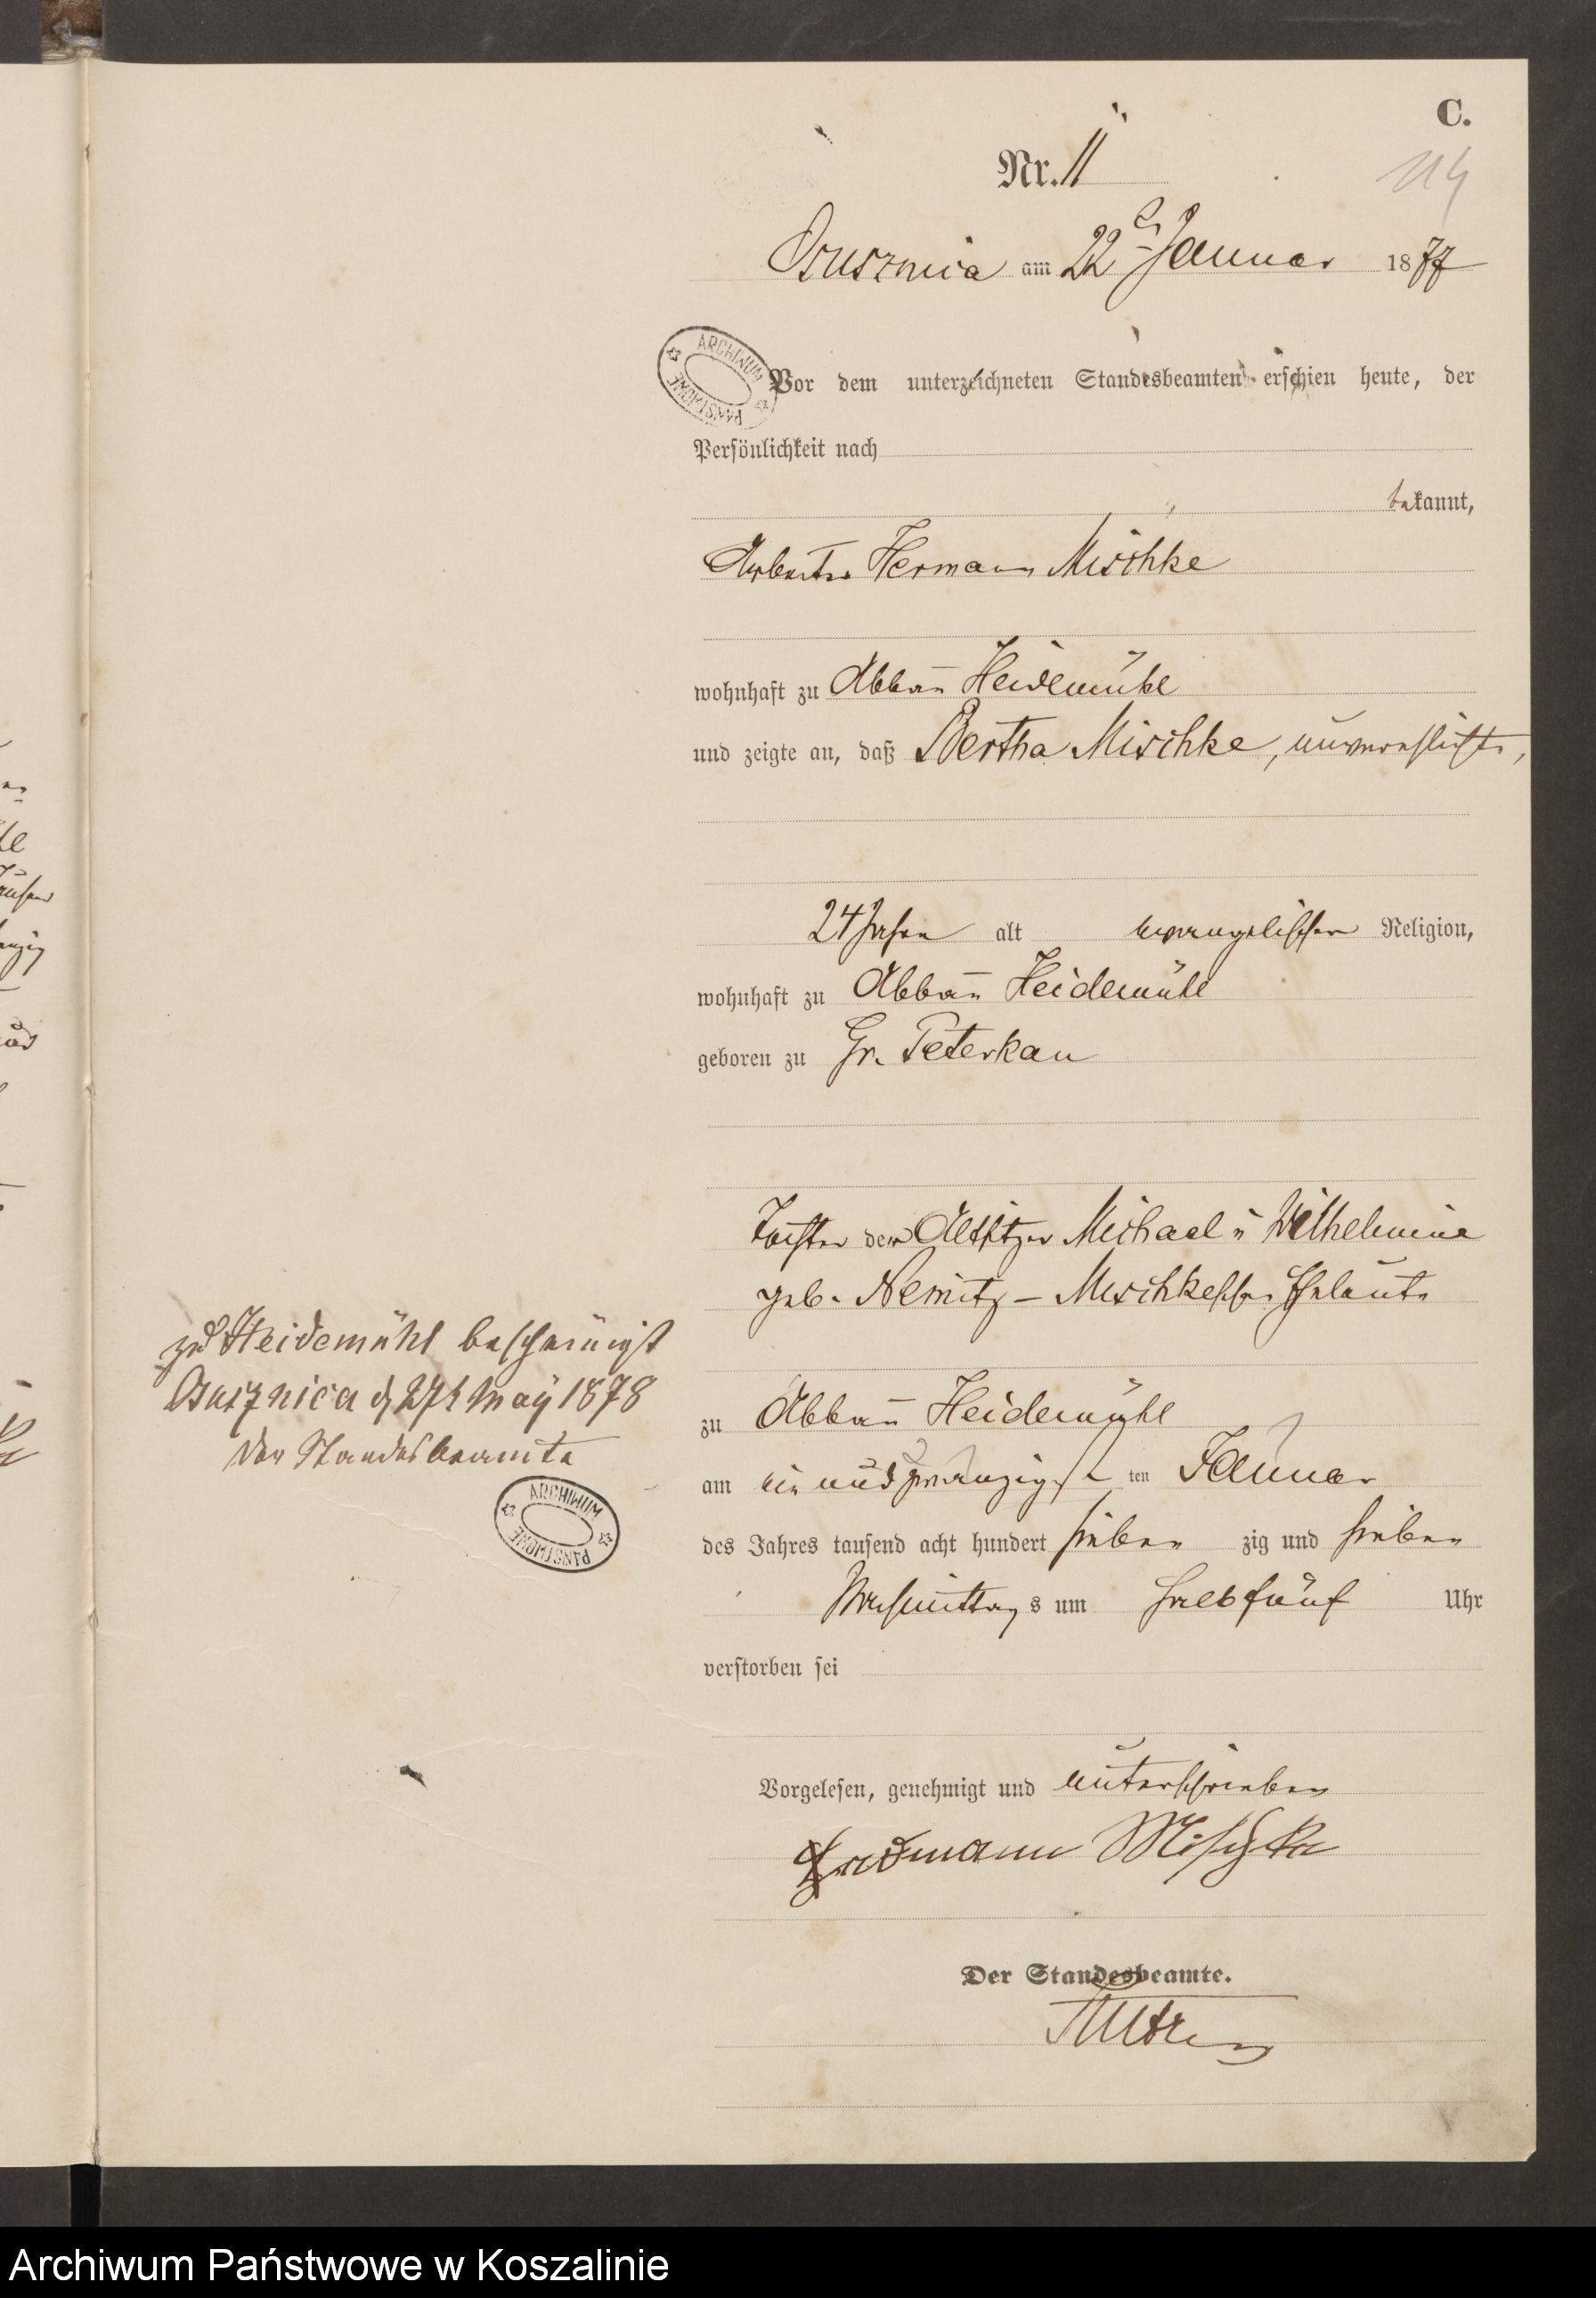 C.
Nr. 11
114
Osusznica am 22t Januar 1877
Vor dem unterzeichneten Standesbeamten erschien heute, der
Persönlichkeit nach
bekannt,
Arbeiter Hermann Mischke
wohnhaft zu Abbau Heidemühl
und zeigte an, daß Bertha Mischke, unverehlicht,
24 Jahre alt evangelischer Religion,
wohnhaft zu Abbau Heidemühl
geboren zu Gr. Peterkau
Tochter der Altsitzer Michael u Wilhelmine
geb. Nemitz - Mischkeschen Eheleute
zu Abbau Heidemühl
am ein und zwanzigsten Januar
des Jahres tausend acht hundert sieben zig und sieben
Nachmittags um halb fünf Uhr
verstorben sei
Vorgelesen, genehmigt und unterschrieben
Mischke
Der Standesbeamte.
zu Heidemühl bescheinigt
d 27t May 1878
Der Standesbeamte
ARCHIWUM PAŃSTWOWE
ARCHIWUM PAŃSTWOWE
Archiwum Państwowe w Koszalinie